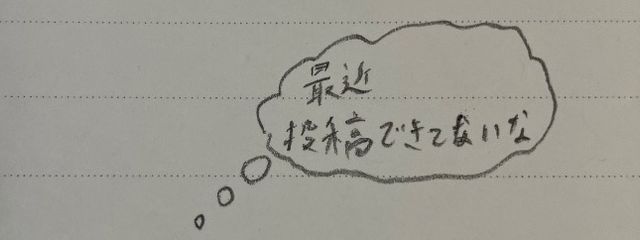 最近
投稿できてないな